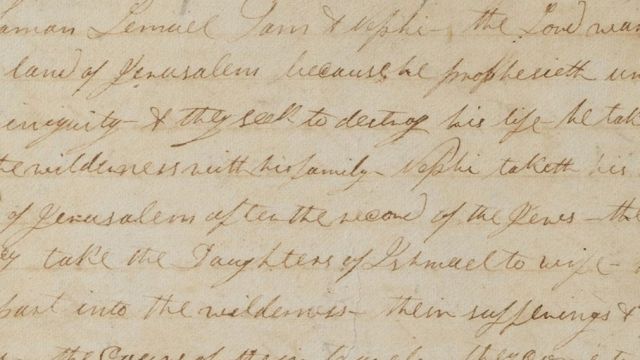 aman Lemuel Sam & Nephi - the Lord war
land of Jerusalem because he prophesieth un
iniquity - & they seek to destroy his life - he tak
the wilderness with his family - Nephi taketh his
of Jerusalem after the record of the Jews - th
ey take the Daughters of Ishmael to wife -
part into the wilderness - their sufferings &
the Course of their travels